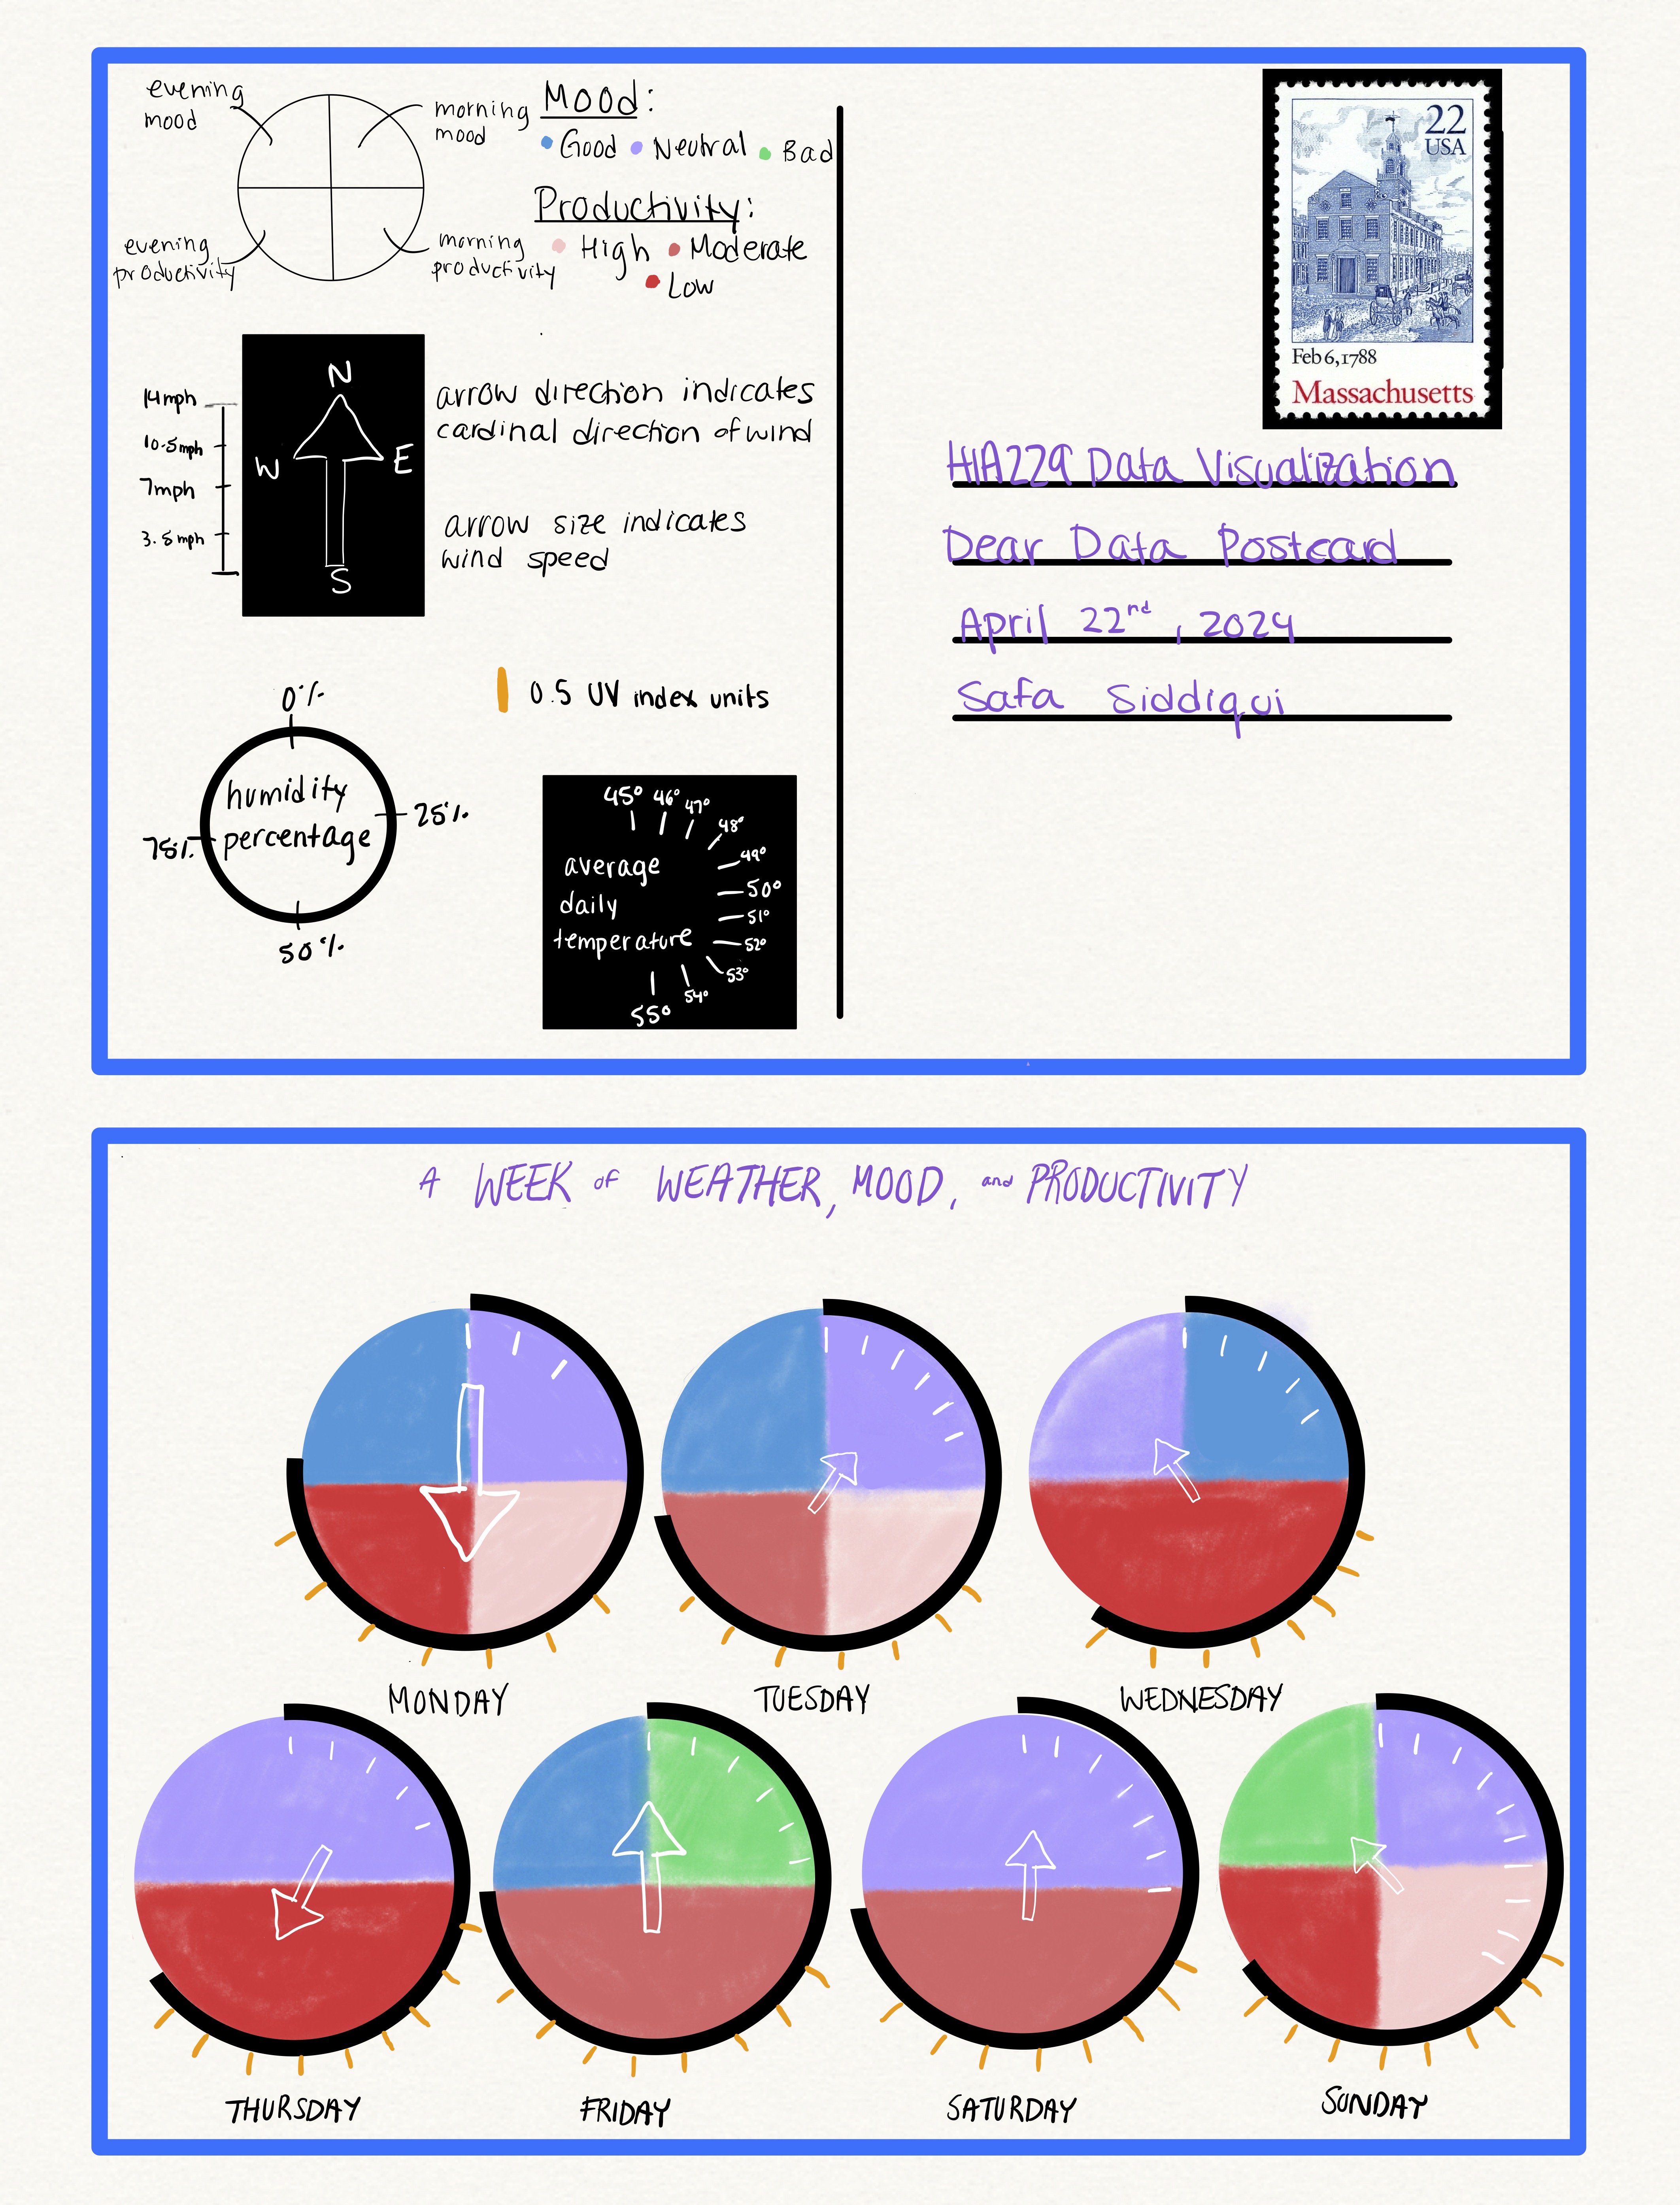 evening
mood
morning
mood
evening
productivity
morning
productivity
Mood:
Good Neutral Bad
Productivity:
High Moderate
Low
14mph
10.5mph
7mph
3.5mph
N
W E
S
arrow direction indicates
cardinal direction of wind
arrow size indicates
wind speed
0%
25%
50%
75%
humidity
percentage
0.5 UV index units
45° 46° 47°
48°
49°
50°
51°
52°
53°
54°
55°
average
daily
temperature
22
USA
Feb 6, 1788
Massachusetts
HIA229 Data Visualization
Dear Data Postcard
April 22nd, 2024
Safa Siddiqui
A WEEK of WEATHER, MOOD, and PRODUCTIVITY
MONDAY TUESDAY WEDNESDAY
THURSDAY FRIDAY SATURDAY SUNDAY